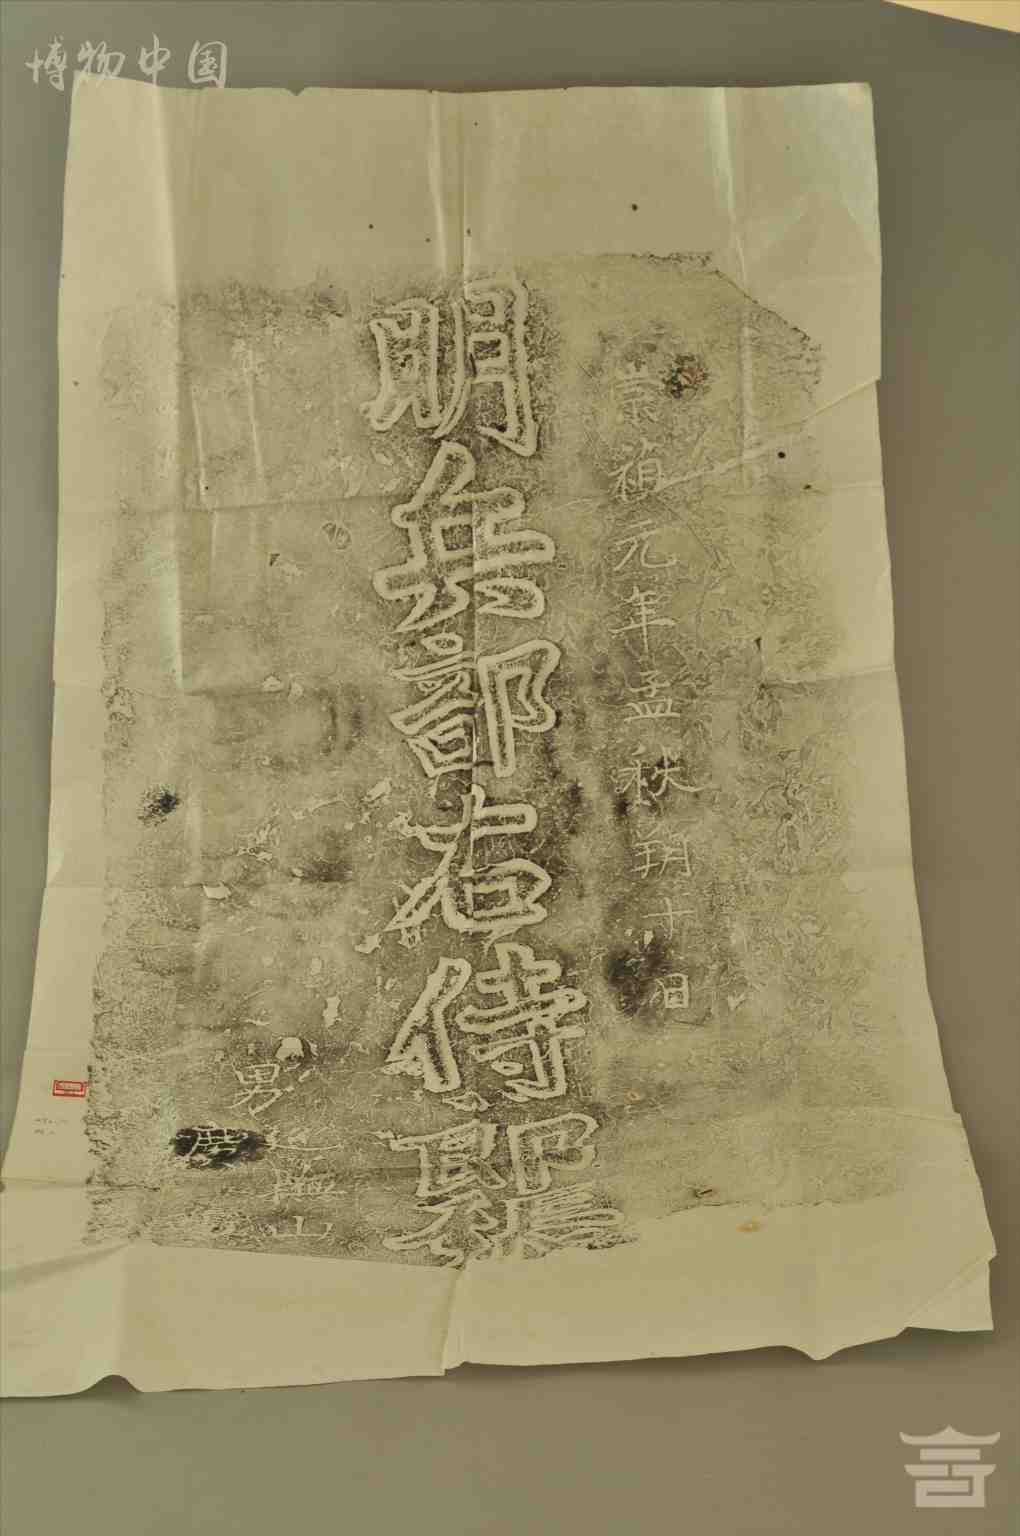 博物中国
崇禎元年孟秋朔十日
明兵部右侍郎
男
山